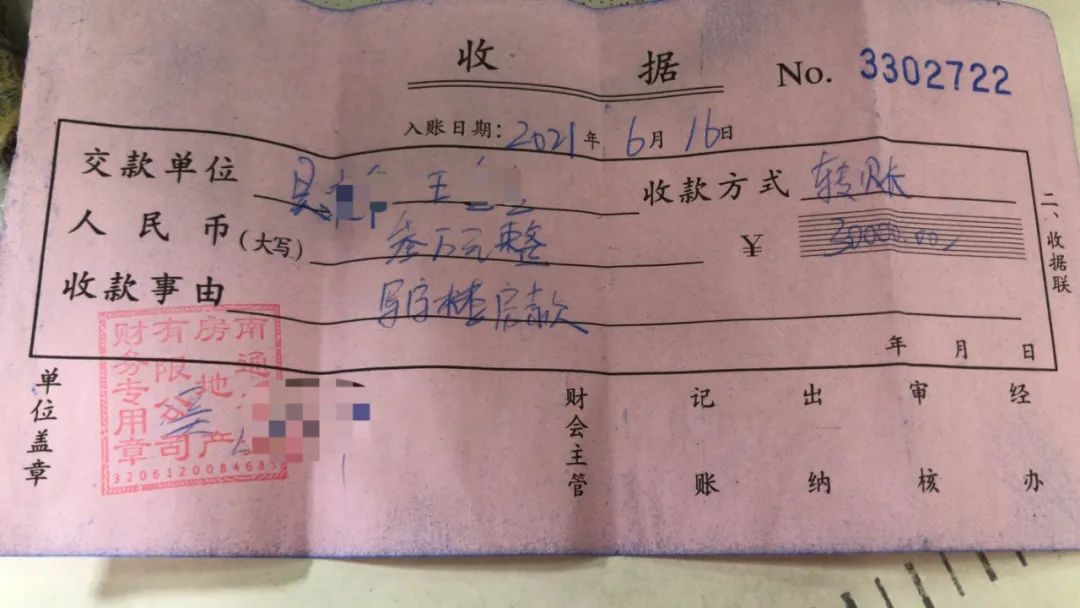 收据 No. 3302722
入账日期：2021年6月16日
交款单位 王 收款方式 转账
人民币（大写） 叁万元整 ￥ 30000.00
收款事由 写字楼房款
年 月 日
二、收据联
单位盖章
财会主管 记账 出纳 审核 经办
南通
房地产
有限公司
财务专用章
3206120084685
吴